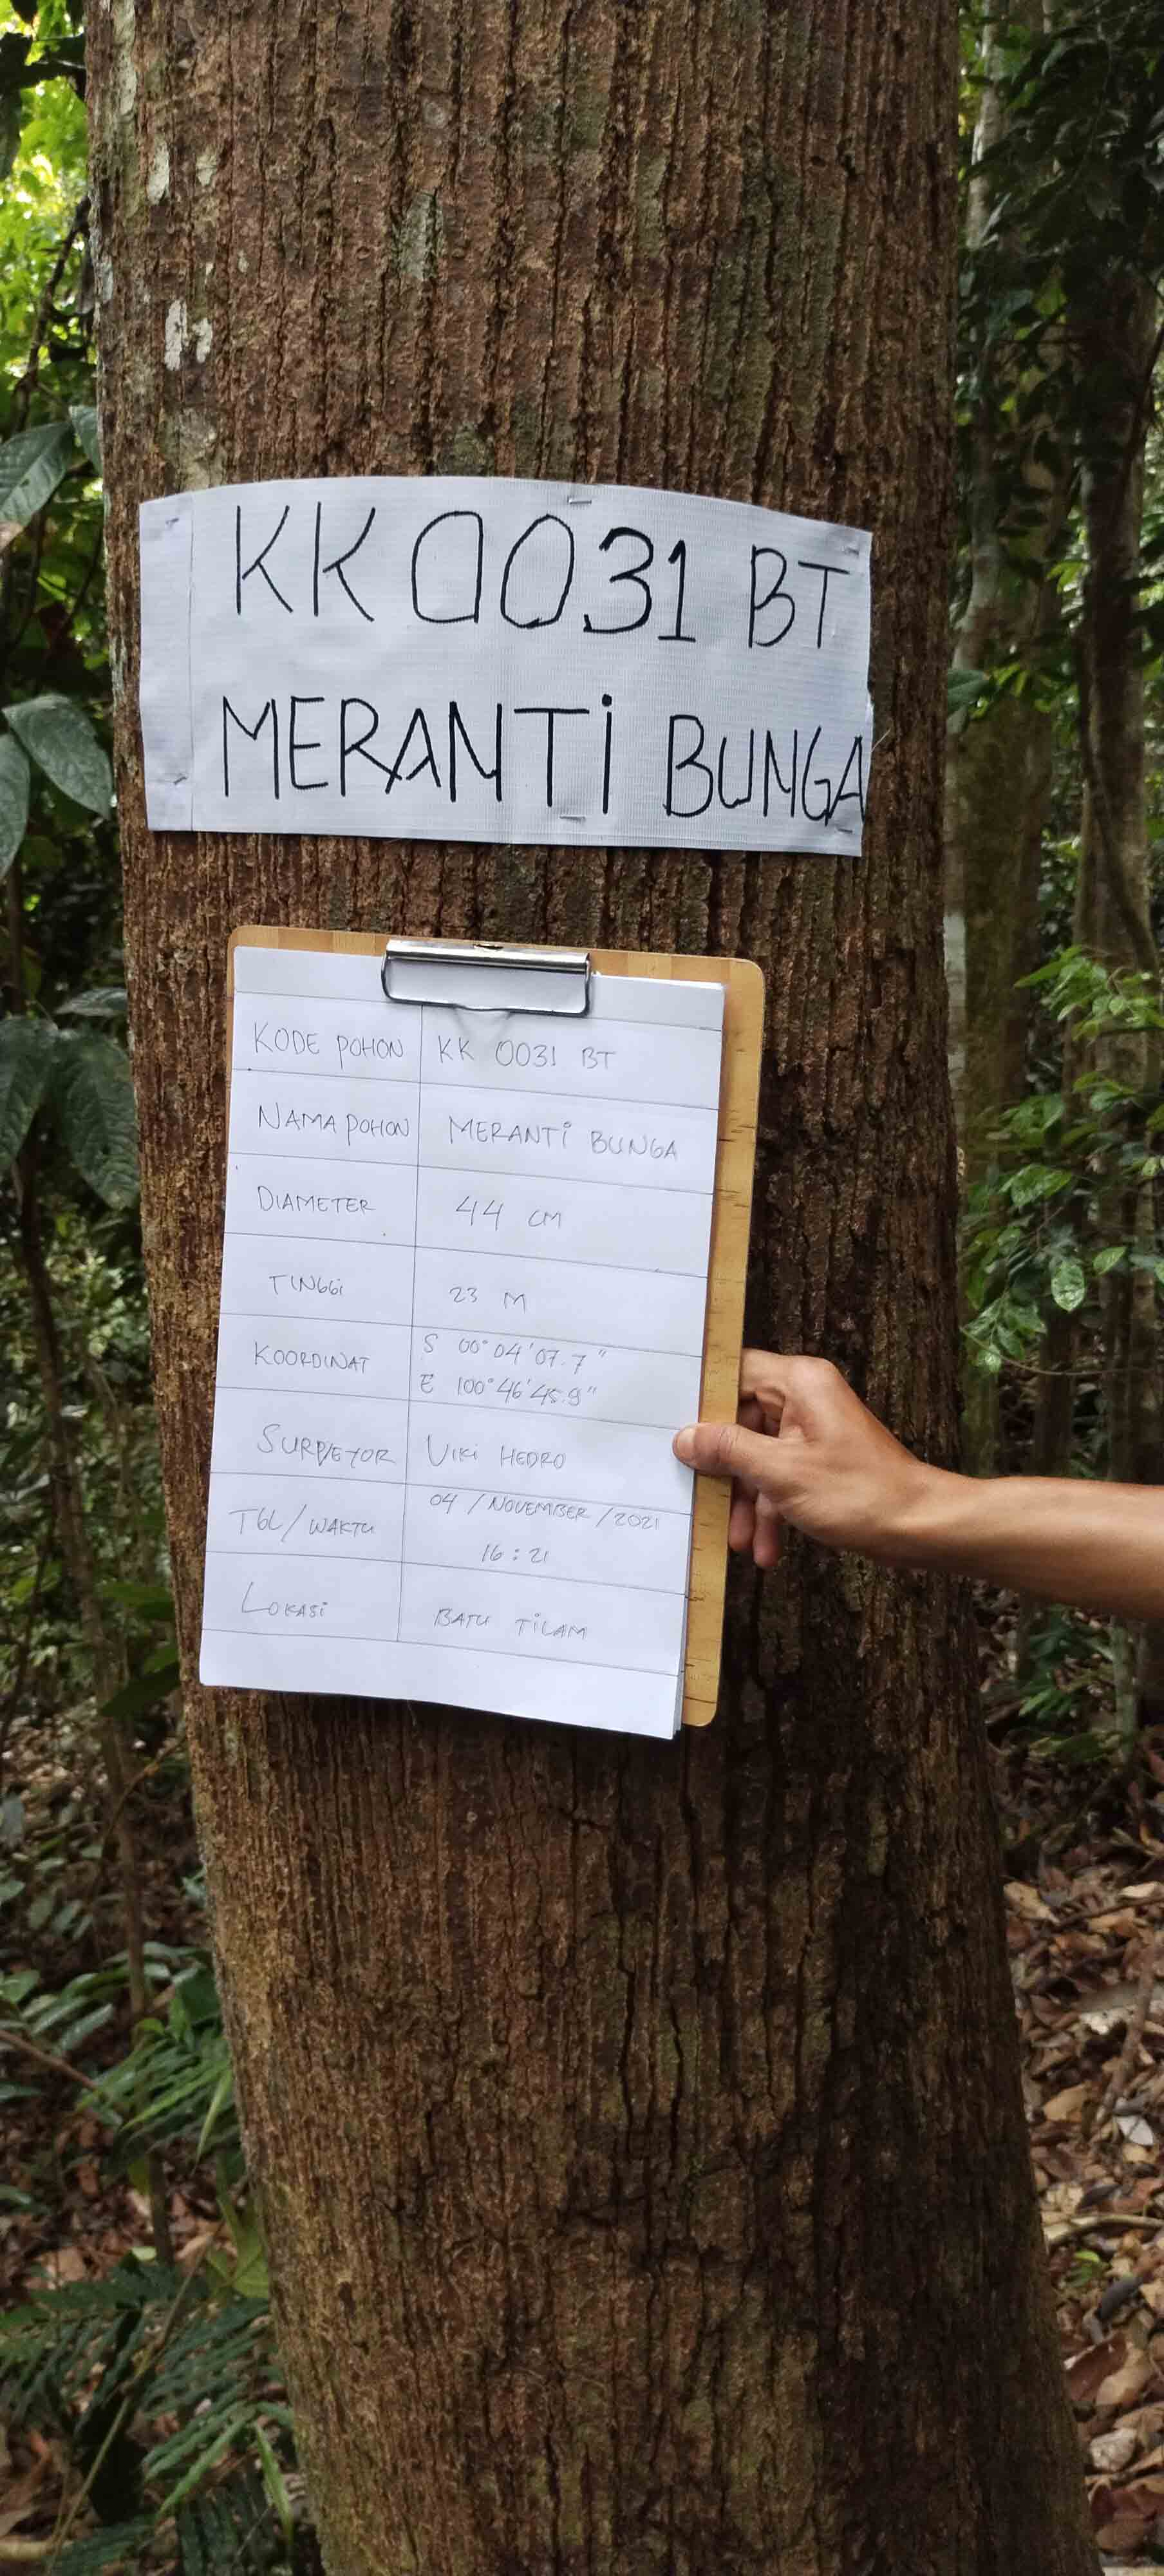 KK 0031 BT
MERANTi BUNGA
KODE POHON KK 0031 BT
NAMA POHON MERANTi BUNGA
DIAMETER 44 CM
TINGGi 23 M
KOORDINAT S 00°04'07.7"
E 100°46'45.9"
SURPYETOR ViKi HEDRO
TGL/WAKTU 04/NOVEMBER/2021
16:21
LOKASi BATU TiLAM